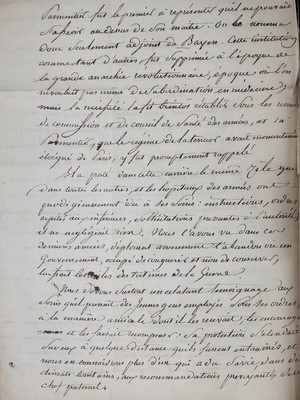 Parmentier fut le premier à représenter qu'il ne pouvait
s'asseoir au dessus de son maître. On le nomma
donc seulement adjoint de Bayen. Cette institution
comme tant d'autres fut supprimée à l'époque de
la grande anarchie révolutionnaire, époque où l'on
ne voulait pas même de subordination en médecine;
mais la nécessité la fit bientôt rétablir sous les noms
de commission et de conseil de santé des armées, et
Parmentier, que le régime de la terreur avait momentanément
éloigné de Paris, y fut promptement rappelé.
Il a porté dans cette carrière le même zèle que
dans toutes les autres, et les hôpitaux des armées ont
prodigieusement dû à ses soins: instructions, ordres
répétés aux inférieurs, sollicitations pressantes à l'autorité,
il ne négligeait rien. Nous l'avons vu dans ces
derniers années, déplorant amèrement
Gouvernement, occupé de conquérir et non de conserver,
les asyles des victimes de la Guerre.
Nous devons surtout un éclatant témoignage aux
soins qu'il prenait des jeunes gens employés sous ses ordres
à la manière amicale dont il les recevait, les encourageait
et les faisait récompenser. Sa protection s'étendait
sur eux à quelque distance qu'ils fussent entraînés, et
nous en connaissons plus d'un qui a dû sa vie dans des
climats lointains, aux recommandations prévoyantes de ce
chef paternel.